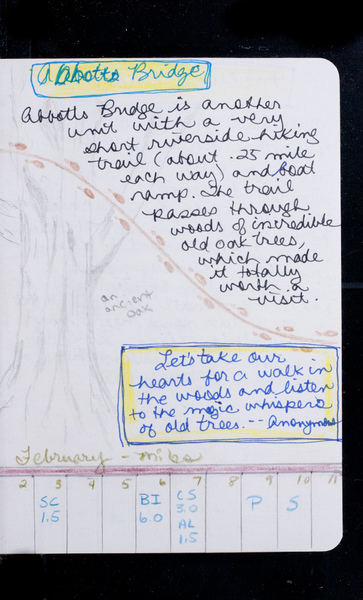 Abbotts Bridge
Abbotts Bridge is another
unit with a very
short riverside hiking
trail (about .25 mile
each way) and boat
ramp. The trail
passes through
woods of incredible
old oak trees,
which made
it totally
worth a
visit.
an
ancient
oak
Let's take our
hearts for a walk in
the woods and listen
to the magic whispers
of old trees. -- Anonymous
February - miles
2 3 4 5 6 7 8 9 10 11
SC BI CS P S
1.5 6.0 3.0
AL
1.5